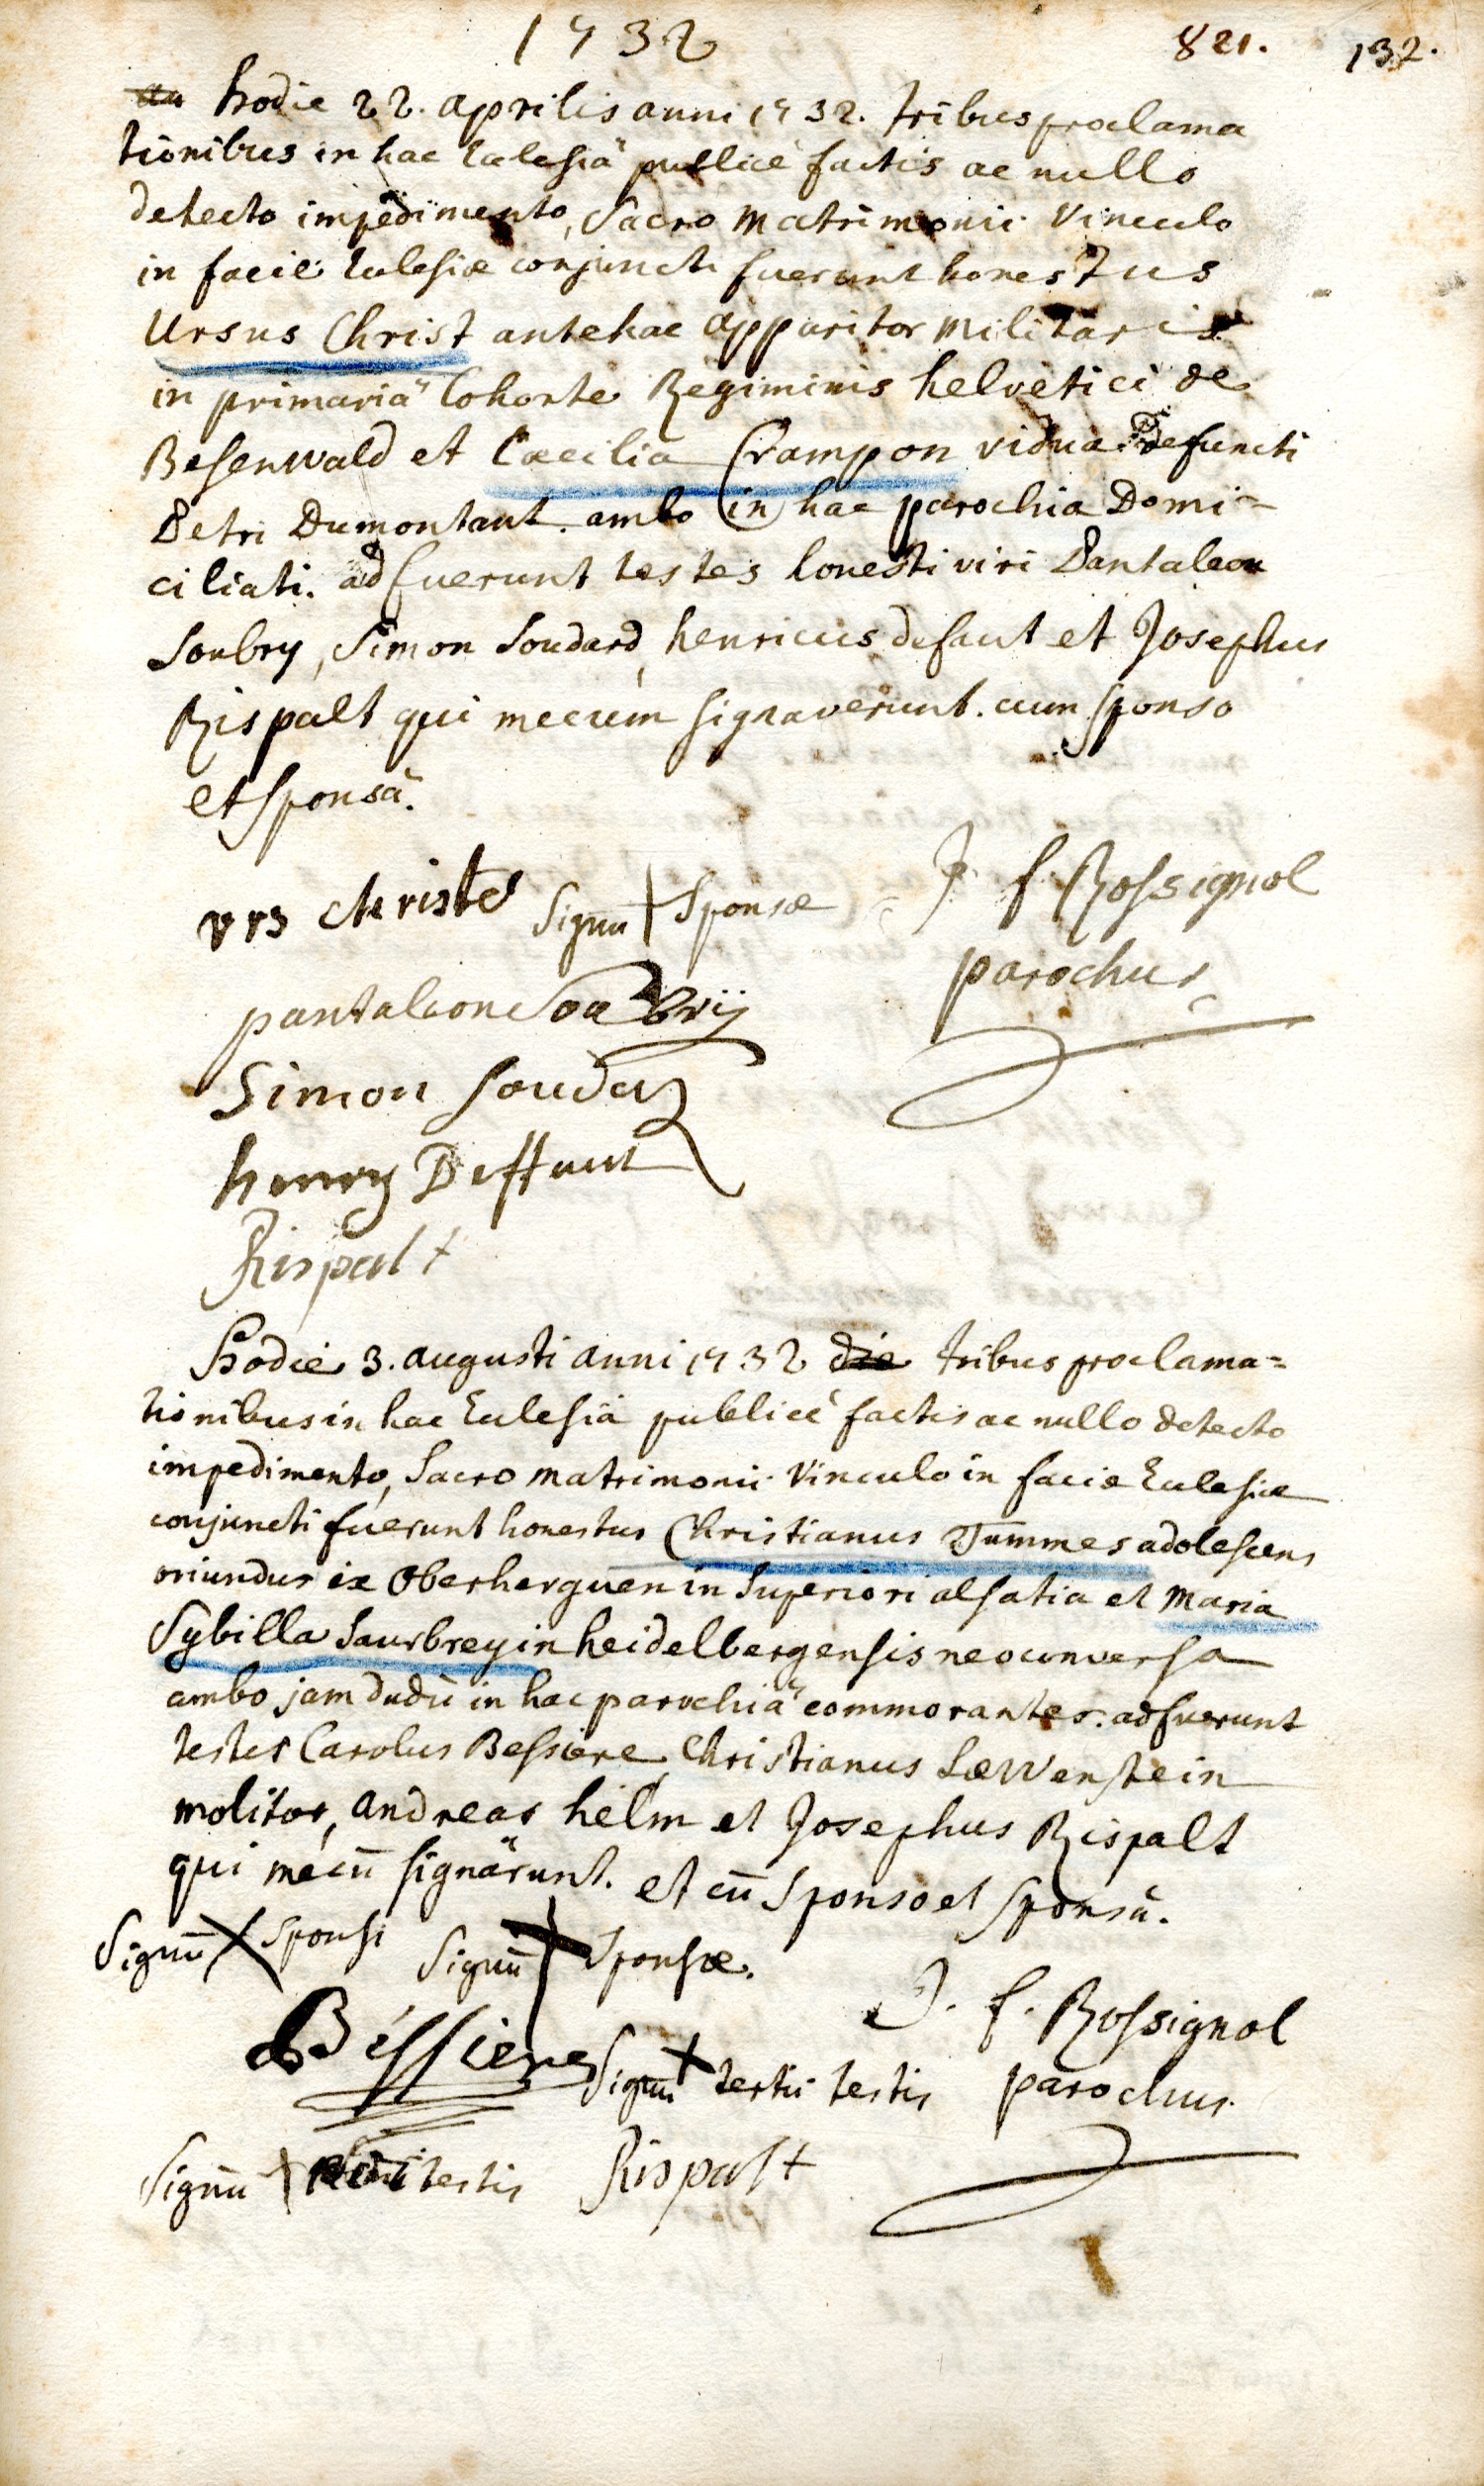 1732
821. 132.
hodie 22. aprilis anni 1732. tribus proclama
tionibus in hac Eclesiâ publicè factis ac nullo
detecto impedimento, Sacro Matrimonii Vinculo
in facie Eclesiæ conjuncti fuerunt honestus
Ursus Christ antehac apparitor militaris
in primariâ Cohorte Regiminis helvetici de
Besenwald et Cæcilia Crampon vidua defuncti
Petri Dumontant. ambo in hac parochia Domi-
ciliati. adfuerunt testes honesti viri Pantaleon
Soubry, Simon Soudard, henricus defaut et Josephus
Rispalt qui mecum signaverunt. cum sponso
et sponsâ.
vrs christe Signū Sponsæ J. f. Rossignol
parochus
pantaleon Soubrÿ
Simon Soudar
henry Deffaut
Rispalt
Hodie 3. augusti anni 1732 die tribus proclama=
tionibus in hac Eclesiâ publicè factis ac nullo detecto
impedimento, Sacro matrimonii Vinculo in facie Eclesiæ
conjuncti fuerunt honestus Christianus Tummes adolescens
oriundus ex Oberherguen in Superiori alsatia et Maria
Sybilla Saurbreyin heidelbergensis neoconversa
ambo jam dudū in hac parochiâ commorantes. adfuerunt
testes Carolus Bessiere, Christianus Lœwenstein
molitor, andreas helm et Josephus Rispalt
qui mecū signârunt. et cū Sponso et Sponsâ.
Signū Sponsi Signū Sponsæ.
J. f. Rossignol
Béssiere Signū tertii testis parochus
Signū testis Rispalt